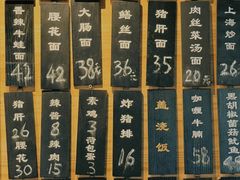 香辣牛蛙面
42
腰花面
42
大肠面
38元
鳝丝面
36
猪肝面
35
肉丝菜汤面
28元
上海炒面
26
猪肝
26
腰花
30
辣酱
8
辣肉
15
素鸡
3
荷包蛋
3
炸猪排
16
盖浇饭
咖喱牛腩
58
黑胡椒菌菇鱿鱼